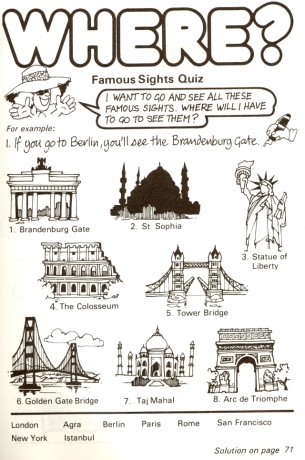 WHERE?
Famous Sights Quiz
I WANT TO GO AND SEE ALL THESE
FAMOUS SIGHTS. WHERE WILL I HAVE
TO GO TO SEE THEM?
For example:
1. If you go to Berlin, you'll see the Brandenburg Gate.
1. Brandenburg Gate
2. St Sophia
3. Statue of
Liberty
4. The Colosseum
5. Tower Bridge
6. Golden Gate Bridge
7. Taj Mahal
8. Arc de Triomphe
London Agra Berlin Paris Rome San Francisco
New York Istanbul
Solution on page 71